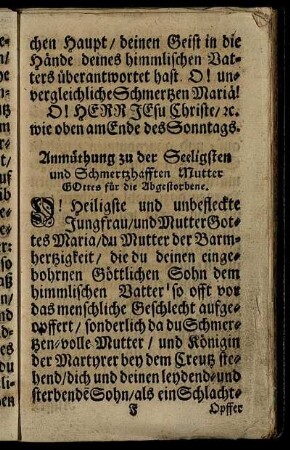 chen Haupt / deinen Geist in die
Hände deines himmlischen Vat-
ters überantwortet hast. O! un-
vergleichliche Schmertzen Mariä!
O! HERR JEsu Christe / ꝛc.
wie oben am Ende des Sonntags.
Anmüthung zu der Seeligsten
und Schmertzhafften Mutter
GOttes für die Abgestorbene.
O! Heiligste und unbefleckte
Jungfrau / und Mutter Got-
tes Maria / du Mutter der Barm-
hertzigkeit / die du deinen einge-
bohrnen Göttlichen Sohn dem
himmlischen Vatter so offt vor
das menschliche Geschlecht aufge-
opffert / sonderlich da du Schmer-
tzen-volle Mutter / und Königin
der Martyrer bey dem Creutz ste-
hend / dich und deinen leydend-und
sterbendē Sohn / als ein Schlacht-
J Opffer